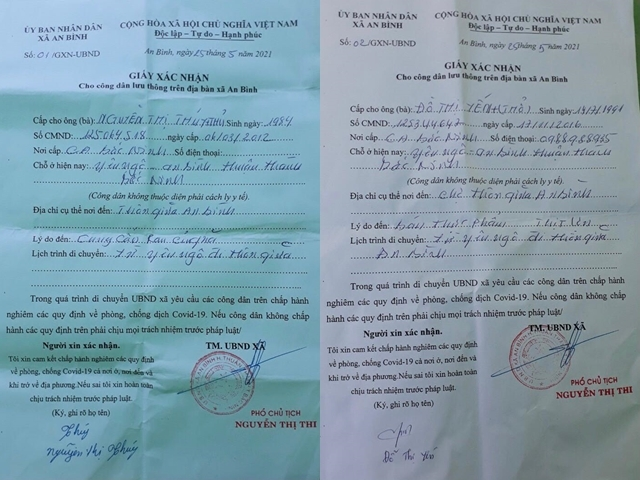 ỦY BAN NHÂN DÂN
XÃ AN BÌNH
Số: 01/GXN-UBND
CỘNG HÒA XÃ HỘI CHỦ NGHĨA VIỆT NAM
Độc lập - Tự do – Hạnh phúc
An Bình, ngày 25 tháng 5 năm 2021
GIẤY XÁC NHẬN
Cho công dân lưu thông trên địa bàn xã An Bình
Cấp cho ông (bà): NGUYỄN THỊ THÚY Sinh ngày: 1984
Số CMND: 125064518 ngày cấp 06/03/2012
Nơi cấp: C.A Bắc Ninh Số điện thoại:
Chỗ ở hiện nay: Yên Ngô – An Bình Thuận Thành
Bắc Ninh
(Công dân không thuộc diện phải cách ly y tế).
Địa chỉ cụ thể nơi đến: Thôn Giữa An Bình
Lý do đến: Cung Cấp Rau
Lịch trình di chuyển: Từ Yên Ngô đi thôn giữa
Trong quá trình di chuyển UBND xã yêu cầu các công dân trên chấp hành
nghiêm các quy định về phòng, chống dịch Covid-19. Nếu công dân không chấp
hành các quy định trên phải chịu mọi trách nhiệm trước pháp luật/
Người xin xác nhận.
Tôi xin cam kết chấp hành nghiêm các quy định
về phòng, chống Covid-19 cả nơi ở, nơi đến và
khi trở về địa phương.Nếu sai tôi xin hoàn toàn
chịu trách nhiệm trước pháp luật.
(Ký, ghi rõ họ tên)
Thúy
Nguyễn Thị Thúy
TM. UBND XÃ
PHÓ CHỦ TỊCH
NGUYỄN THỊ THI
ỦY BAN NHÂN DÂN
XÃ AN BÌNH
Số: 02/GXN-UBND
CỘNG HÒA XÃ HỘI CHỦ NGHĨA VIỆT NAM
Độc lập - Tự do – Hạnh phúc
An Bình, ngày 25 tháng 5 năm 2021
GIẤY XÁC NHẬN
Cho công dân lưu thông trên địa bàn xã An Bình
Cấp cho ông (bà): ĐỖ THỊ YẾN Sinh ngày
Số CMND: 125344642 ngày cấp 17/01/2016
Nơi cấp: C.A. Bắc Ninh Số điện thoại:
Chỗ ở hiện nay: Yên Ngô – An Bình Thuận Thành
Bắc Ninh
(Công dân không thuộc diện phải cách ly y tế).
Địa chỉ cụ thể nơi đến: Chợ Thôn Giữa An Bình
Lý do đến: Bán Thực Phẩm Thịt Lợn
Lịch trình di chuyển: Từ Yên Ngô đi thôn giữa
An Bình
Trong quá trình di chuyển UBND xã yêu cầu các công dân trên chấp hành
nghiêm các quy định về phòng, chống dịch Covid-19. Nếu công dân không chấp
hành các quy định trên phải chịu mọi trách nhiệm trước pháp luật/
Người xin xác nhận.
Tôi xin cam kết chấp hành nghiêm các quy định
về phòng, chống Covid-19 cả nơi ở, nơi đến và
khi trở về địa phương.Nếu sai tôi xin hoàn toàn
chịu trách nhiệm trước pháp luật.
(Ký, ghi rõ họ tên)
Đỗ Thị Yến
TM. UBND XÃ
PHÓ CHỦ TỊCH
NGUYỄN THỊ THI